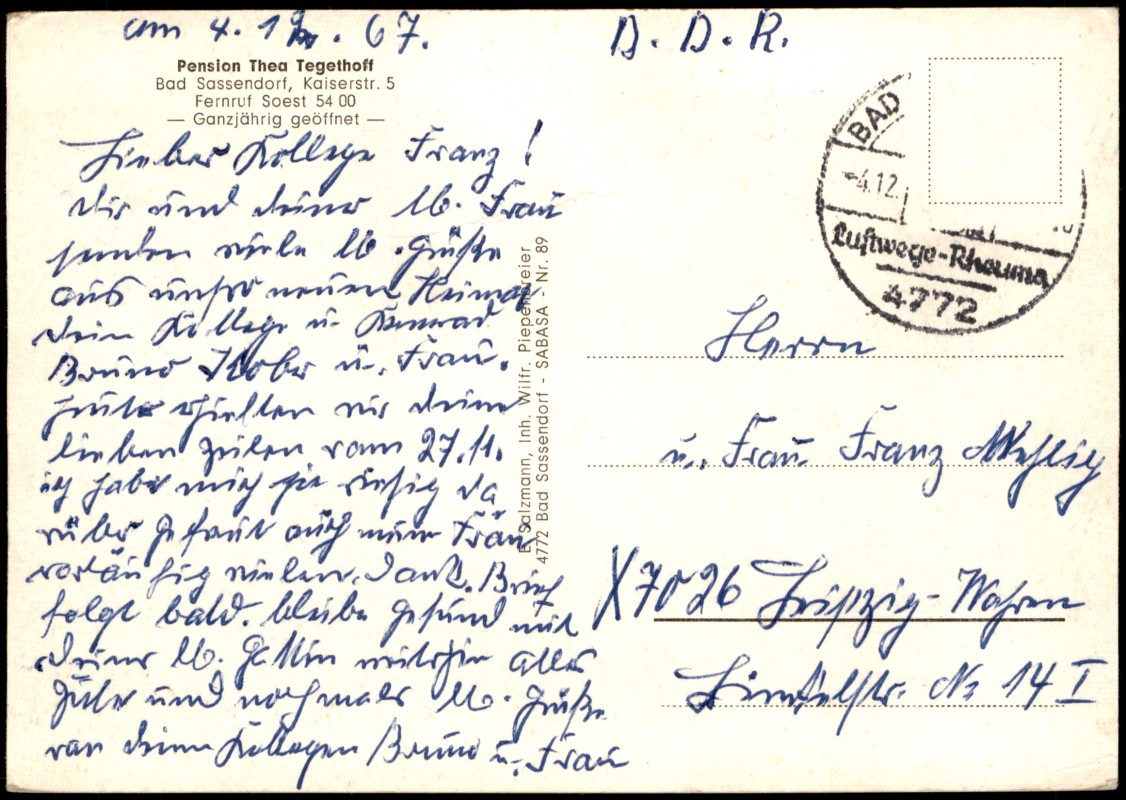 am 4. 12. 67.
Pension Thea Tegethoff
Bad Sassendorf, Kaiserstr. 5
Fernruf Soest 54 00
— Ganzjährig geöffnet —
Lieber Kollege Franz!
dir und deiner lb. Frau
senden viele lb. Grüße
aus unsrer neuen Heimat
dein Kollege u.
Bruno u. Frau.
Heute erhielten wir deine
lieben Zeilen vom 27.11.
ich habe mich sie riesig da
rüber gefreut auch meine Frau
vorläufig vielen Dank. Brief
folgt bald. bleibe gesund mit
deiner lb. Gattin weiterhin alles
Gute und nochmals lb. Grüße
von deinen Kollegen Bruno u. Frau
E. Salzmann, Inh. Wilfr. Piepenbreier
4772 Bad Sassendorf - SABASA - Nr. 89
D. D. R.
BAD
-4.12.
Luftwege-Rheuma
4772
Herrn
u. Frau Franz Mehlig
X7026 Leipzig-Wahren
No 14 I